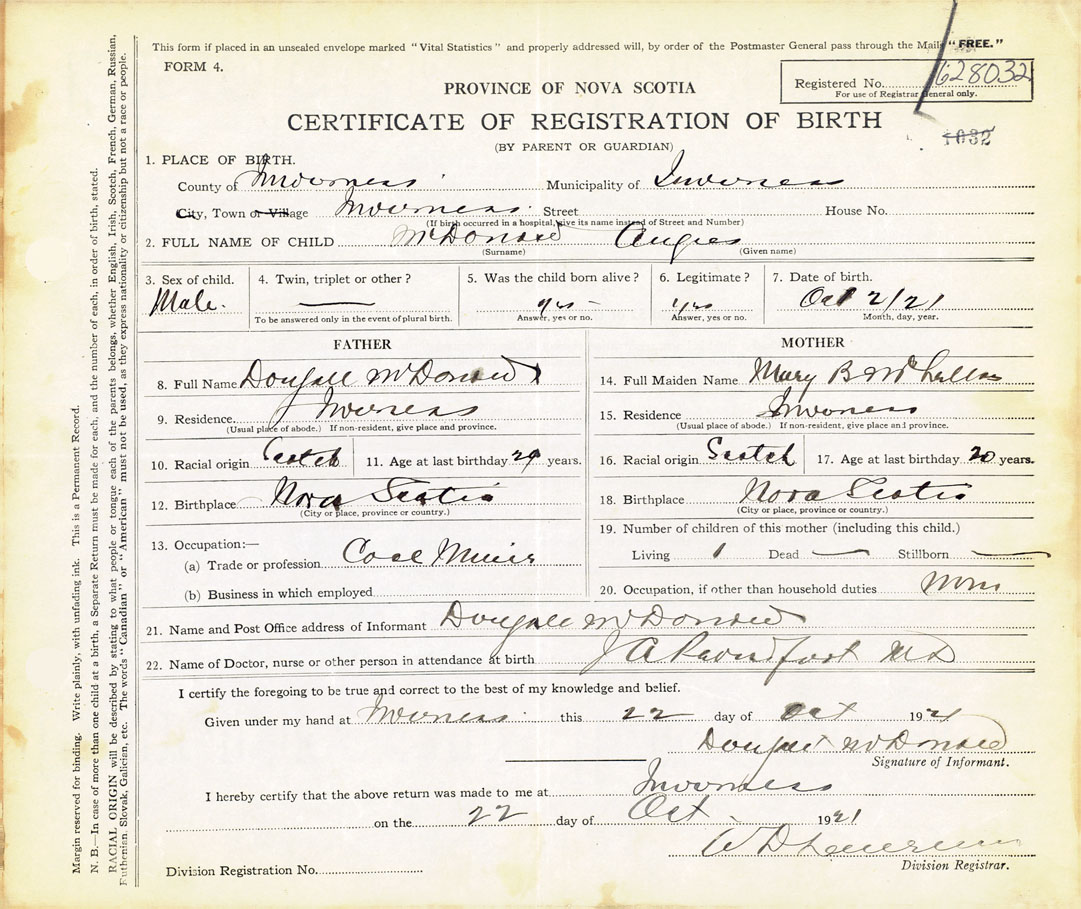 This form if placed in an unsealed envelope marked "Vital Statistics" and properly addressed will, by order of the Postmaster General pass through the Mails "FREE."
FORM 4.
Registered No. 628032
For use of Registrar General only.
PROVINCE OF NOVA SCOTIA
CERTIFICATE OF REGISTRATION OF BIRTH
1032
(BY PARENT OR GUARDIAN)
1. PLACE OF BIRTH.
County of Inverness Municipality of Inverness
City, Town or Village Inverness Street House No.
(If birth occurred in a hospital, give its name instead of Street and Number)
2. FULL NAME OF CHILD McDonald Angus
(Surname) (Given name)
3. Sex of child. 4. Twin, triplet or other? 5. Was the child born alive? 6. Legitimate? 7. Date of birth.
Male. yes yes Oct 2/21
To be answered only in the event of plural birth. Answer, yes or no. Answer, yes or no. Month, day, year.
FATHER MOTHER
8. Full Name Dougall McDonald 14. Full Maiden Name Mary B
9. Residence. Inverness 15. Residence Inverness
(Usual place of abode.) If non-resident, give place and province. (Usual place of abode.) If non-resident, give place and province.
10. Racial origin Scotch 11. Age at last birthday 29 years. 16. Racial origin Scotch 17. Age at last birthday 20 years.
12. Birthplace Nova Scotia 18. Birthplace Nova Scotia
(City or place, province or country.) (City or place, province or country.)
13. Occupation:— 19. Number of children of this mother (including this child.)
(a) Trade or profession Coal Miner Living 1 Dead — Stillborn —
(b) Business in which employed 20. Occupation, if other than household duties None
21. Name and Post Office address of Informant Dougall McDonald
22. Name of Doctor, nurse or other person in attendance at birth J A MD
I certify the foregoing to be true and correct to the best of my knowledge and belief.
Given under my hand at Inverness this 22 day of Oct 1921
Dougall McDonald
Signature of Informant.
I hereby certify that the above return was made to me at Inverness
on the 22 day of Oct. 1921
W D
Division Registrar.
Division Registration No.
Margin reserved for binding. Write plainly, with unfading ink. This is a Permanent Record.
N. B.—In case of more than one child at a birth, a Separate Return must be made for each, and the number of each, in order of birth, stated.
RACIAL ORIGIN will be described by stating to what people or tongue each of the parents belongs, whether English, Irish, Scotch, French, German, Russian,
Ruthenian, Slovak, Galician, etc. The words "Canadian" or "American" must not be used, as they express nationality or citizenship but not a race or people.